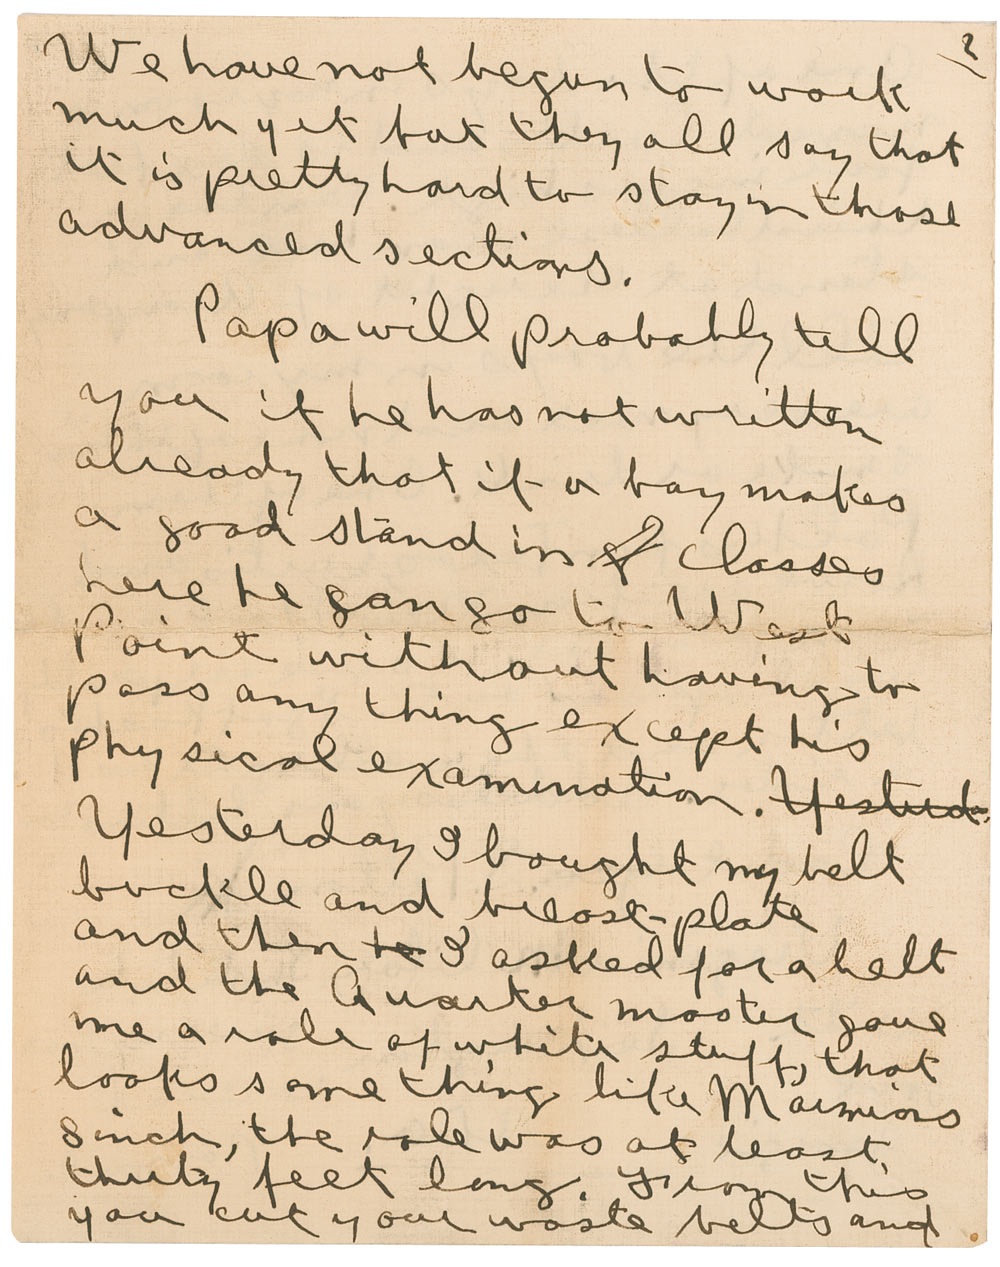 2
We have not begun to work
much yet but they all say that
it is pretty hard to stay in those
advanced sections.
Papa will probably tell
you if he has not written
already that if a boy makes
a good stand in classes
here he gan go to West
Point without having to
pass any thing except his
physical examination. Yesterd
Yesterday I bought my belt
buckle and breast-plate
and then he I asked for a belt
and the Quarter master gave
me a role of white stuff, that
looks some thing like Marmions
sinch, the role was at least
thirty feet long. From this
you cut your waste belts and